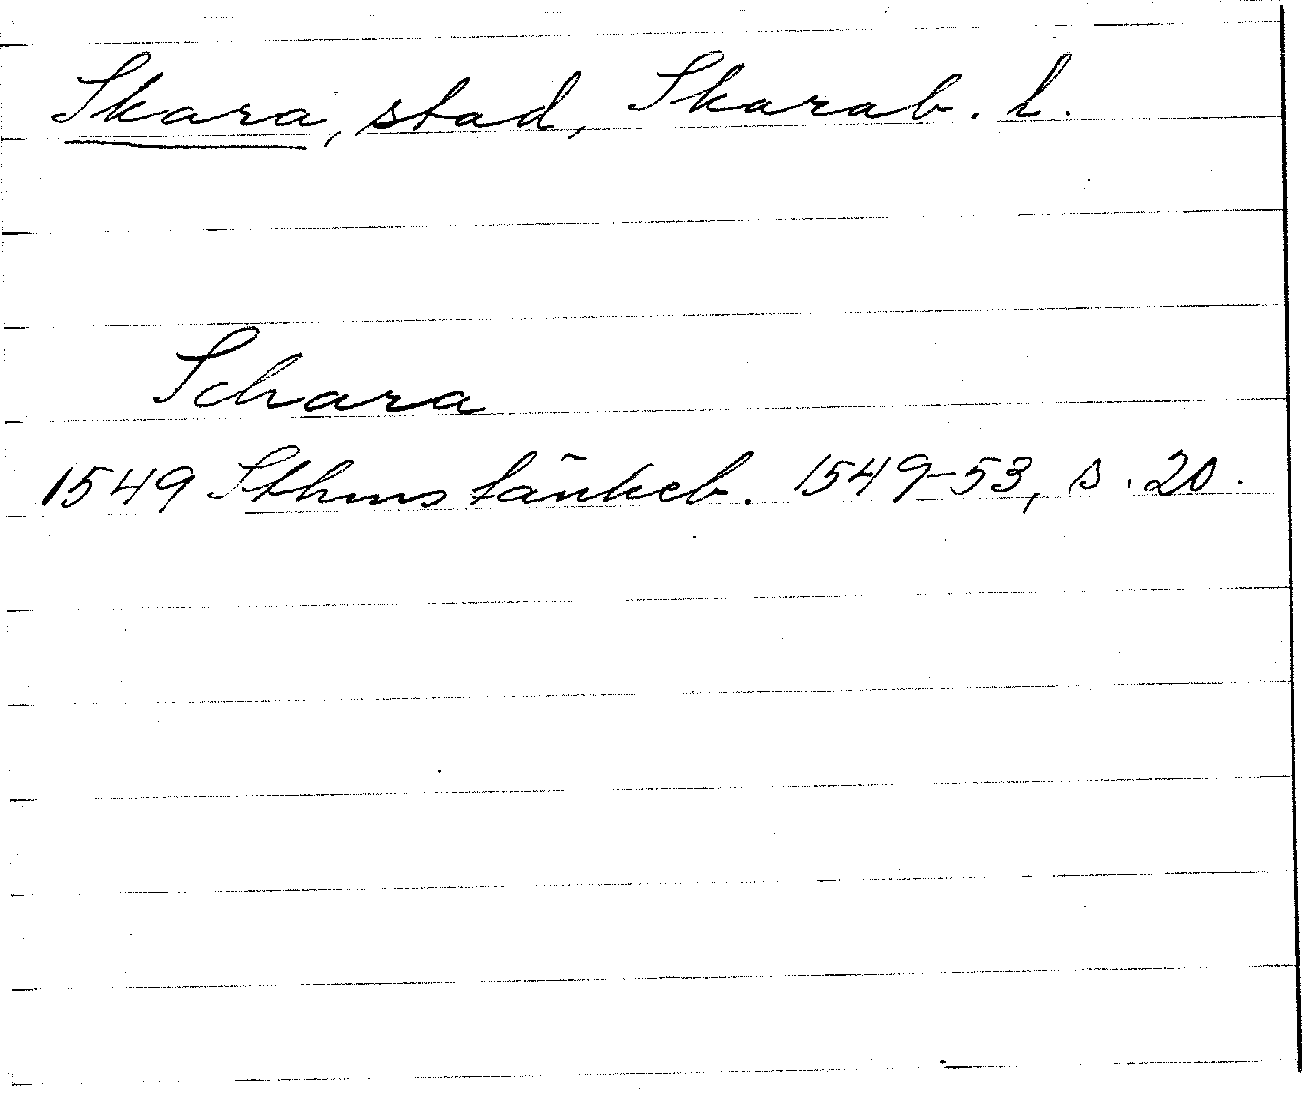 Skara, stad, Skarab. l.
Schara
1549 Sthms tänkeb. 1549-53, s. 20.